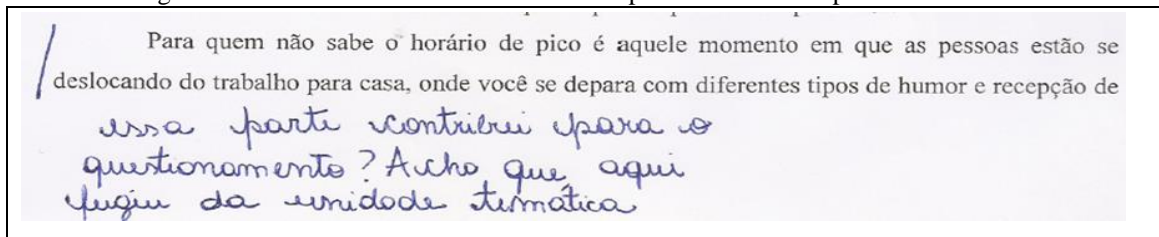 Para quem não sabe o horário de pico é aquele momento em que as pessoas estão se
deslocando do trabalho para casa, onde você se depara com diferentes tipos de humor e recepção de
essa parte contribui para o
questionamento? Acho que, aqui
fugiu da unidade temática